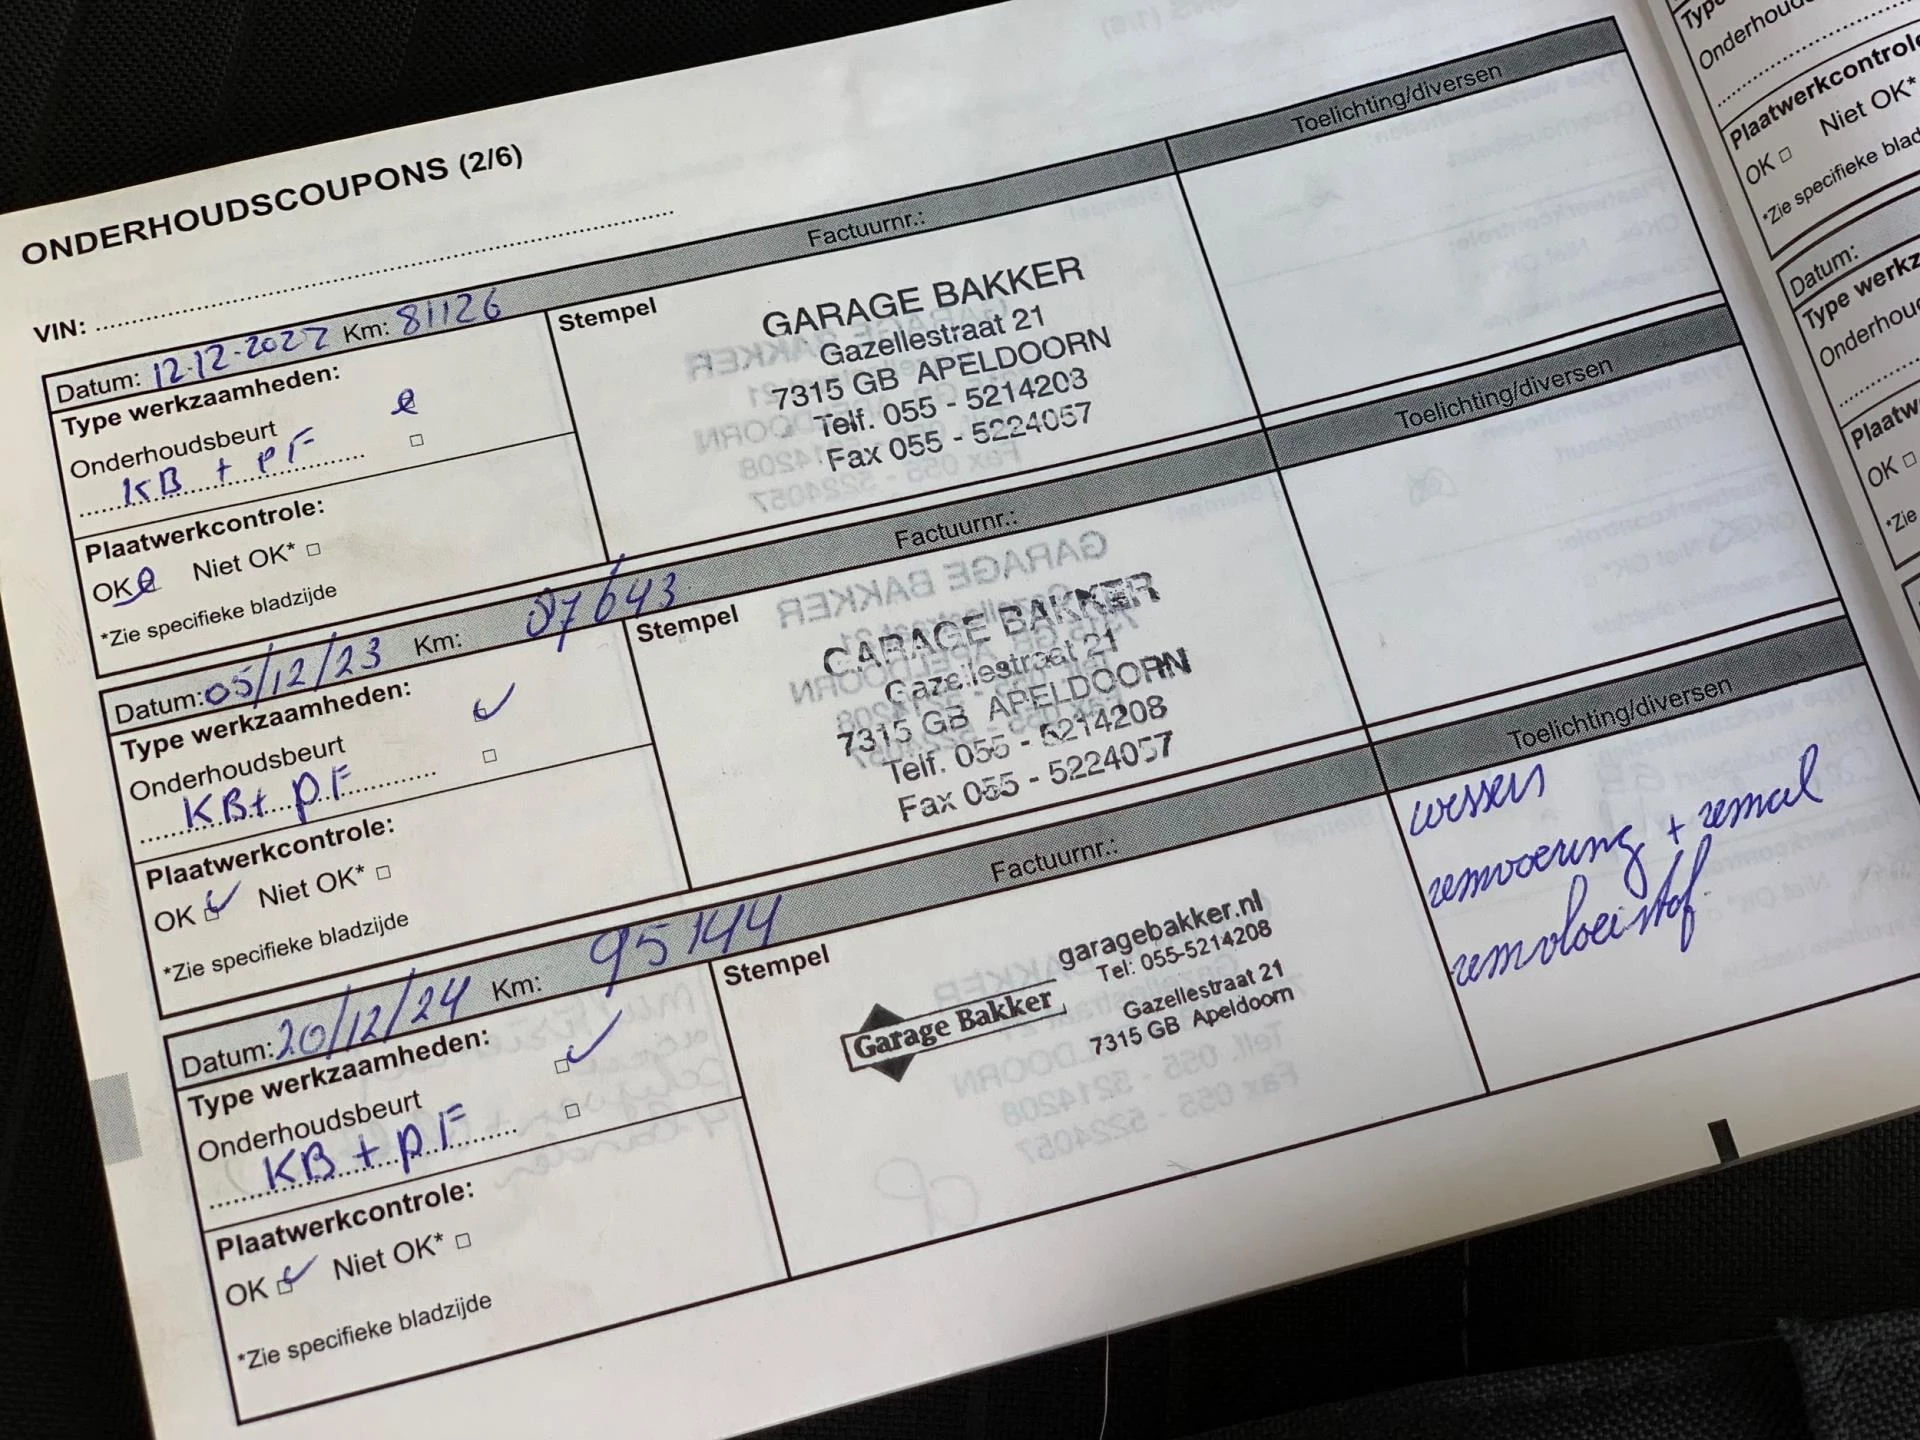 ONDERHOUDSCOUPONS (2/6)
VIN:
Datum: 12-12-2022 Km: 81126 Factuurnr.: Toelichting/diversen
Type werkzaamheden:
Onderhoudsbeurt
KB + PF
Plaatwerkcontrole:
OK Niet OK*
*Zie specifieke bladzijde
Stempel
GARAGE BAKKER
Gazellestraat 21
7315 GB APELDOORN
Telf. 055 - 5214208
Fax 055 - 5224057
Datum: 05/12/23 Km: 87643 Factuurnr.: Toelichting/diversen
Type werkzaamheden:
Onderhoudsbeurt
KB+ PF
Plaatwerkcontrole:
OK Niet OK*
*Zie specifieke bladzijde
Stempel
GARAGE BAKKER
Gazellestraat 21
7315 GB APELDOORN
Telf. 055 - 5214208
Fax 055 - 5224057
Datum: 20/12/24 Km: 95144 Factuurnr.: Toelichting/diversen
Type werkzaamheden:
Onderhoudsbeurt
KB + PF
Plaatwerkcontrole:
OK Niet OK*
*Zie specifieke bladzijde
Stempel
Garage Bakker
garagebakker.nl
Tel: 055-5214208
Gazellestraat 21
7315 GB Apeldoorn
wissers
remvoering + remcil
remvloeistof.
Onderhoud
Plaatwerkcontrole
OK Niet OK*
*Zie specifieke
Datum:
Type werkz
Onderhou
Plaatw
OK
*Zie